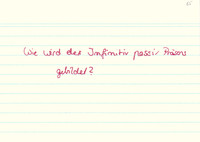 Wie wird der Infinitiv passiv Präsens
gebildet?